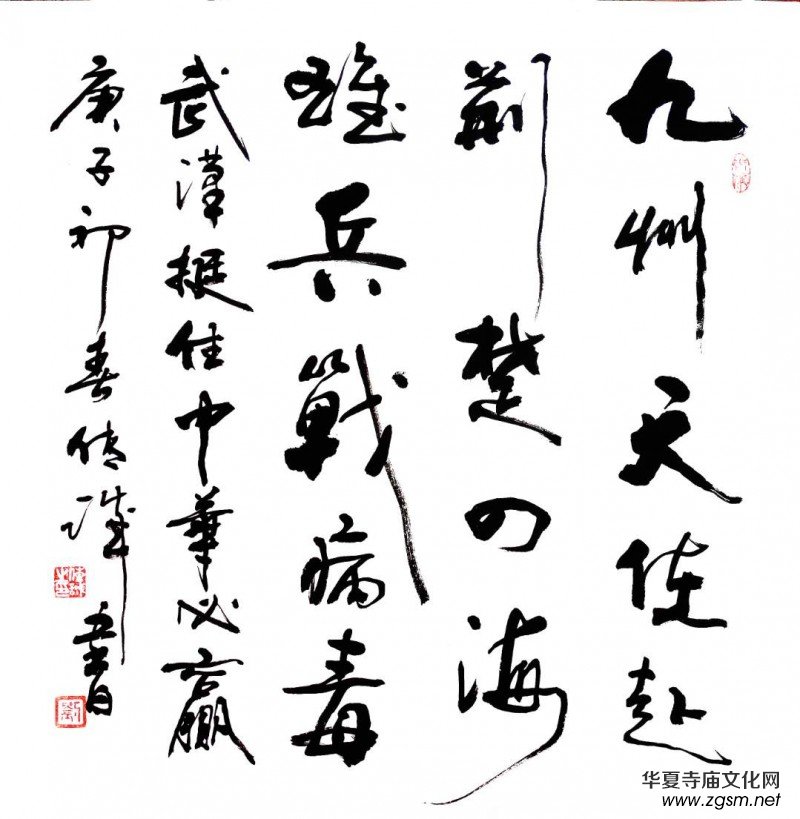 九州天使赴
荊楚四海
雄兵戰病毒
武漢挺住中華必贏
庚子初春
华夏寺庙文化网
www.zgsm.net